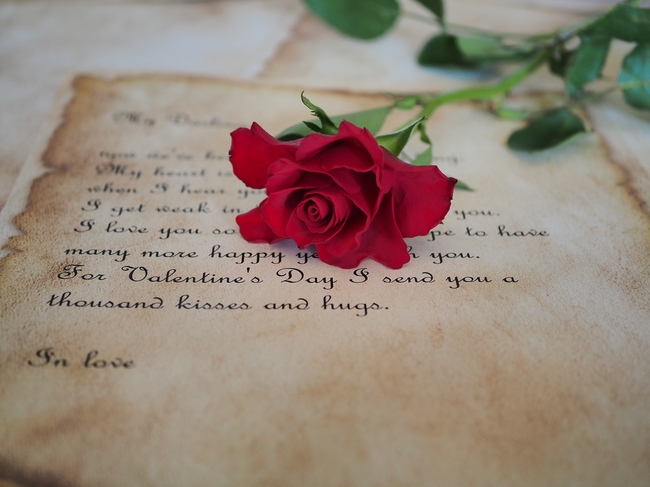 My Darling
My heart is
when I hear yo
I get weak in you.
I love you so pe to have
many more happy ye h you.
For Valentine's Day I send you a
thousand kisses and hugs.
In love